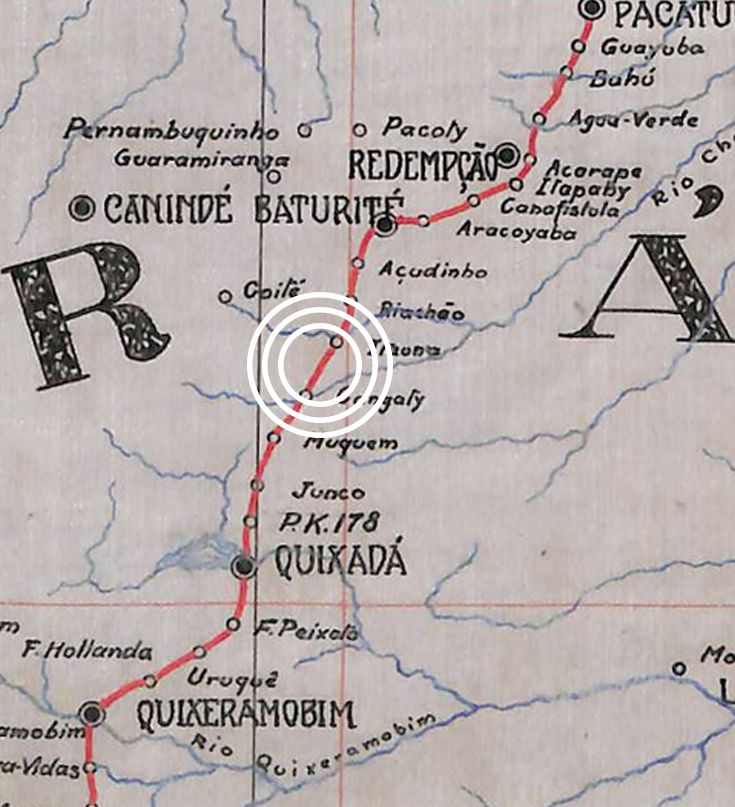 PACATU
Guayuba
Bahú
Agua-Verde
Pernambuquinho
Pacoty
Guaramiranga
REDEMPÇÃO
Acarape
Itapahy
Canafistula
Rio Ch
CANINDÉ
BATURITÉ
Aracoyaba
R
Á
Açudinho
Coité
Riachão
Cangaty
Muquem
Junco
P.K.178
QUIXADÁ
m
F.Peixoto
F.Hollanda
Mo
Uruquê
L
QUIXERAMOBIM
amobim
Rio Quixeramobim
ra-Vidas